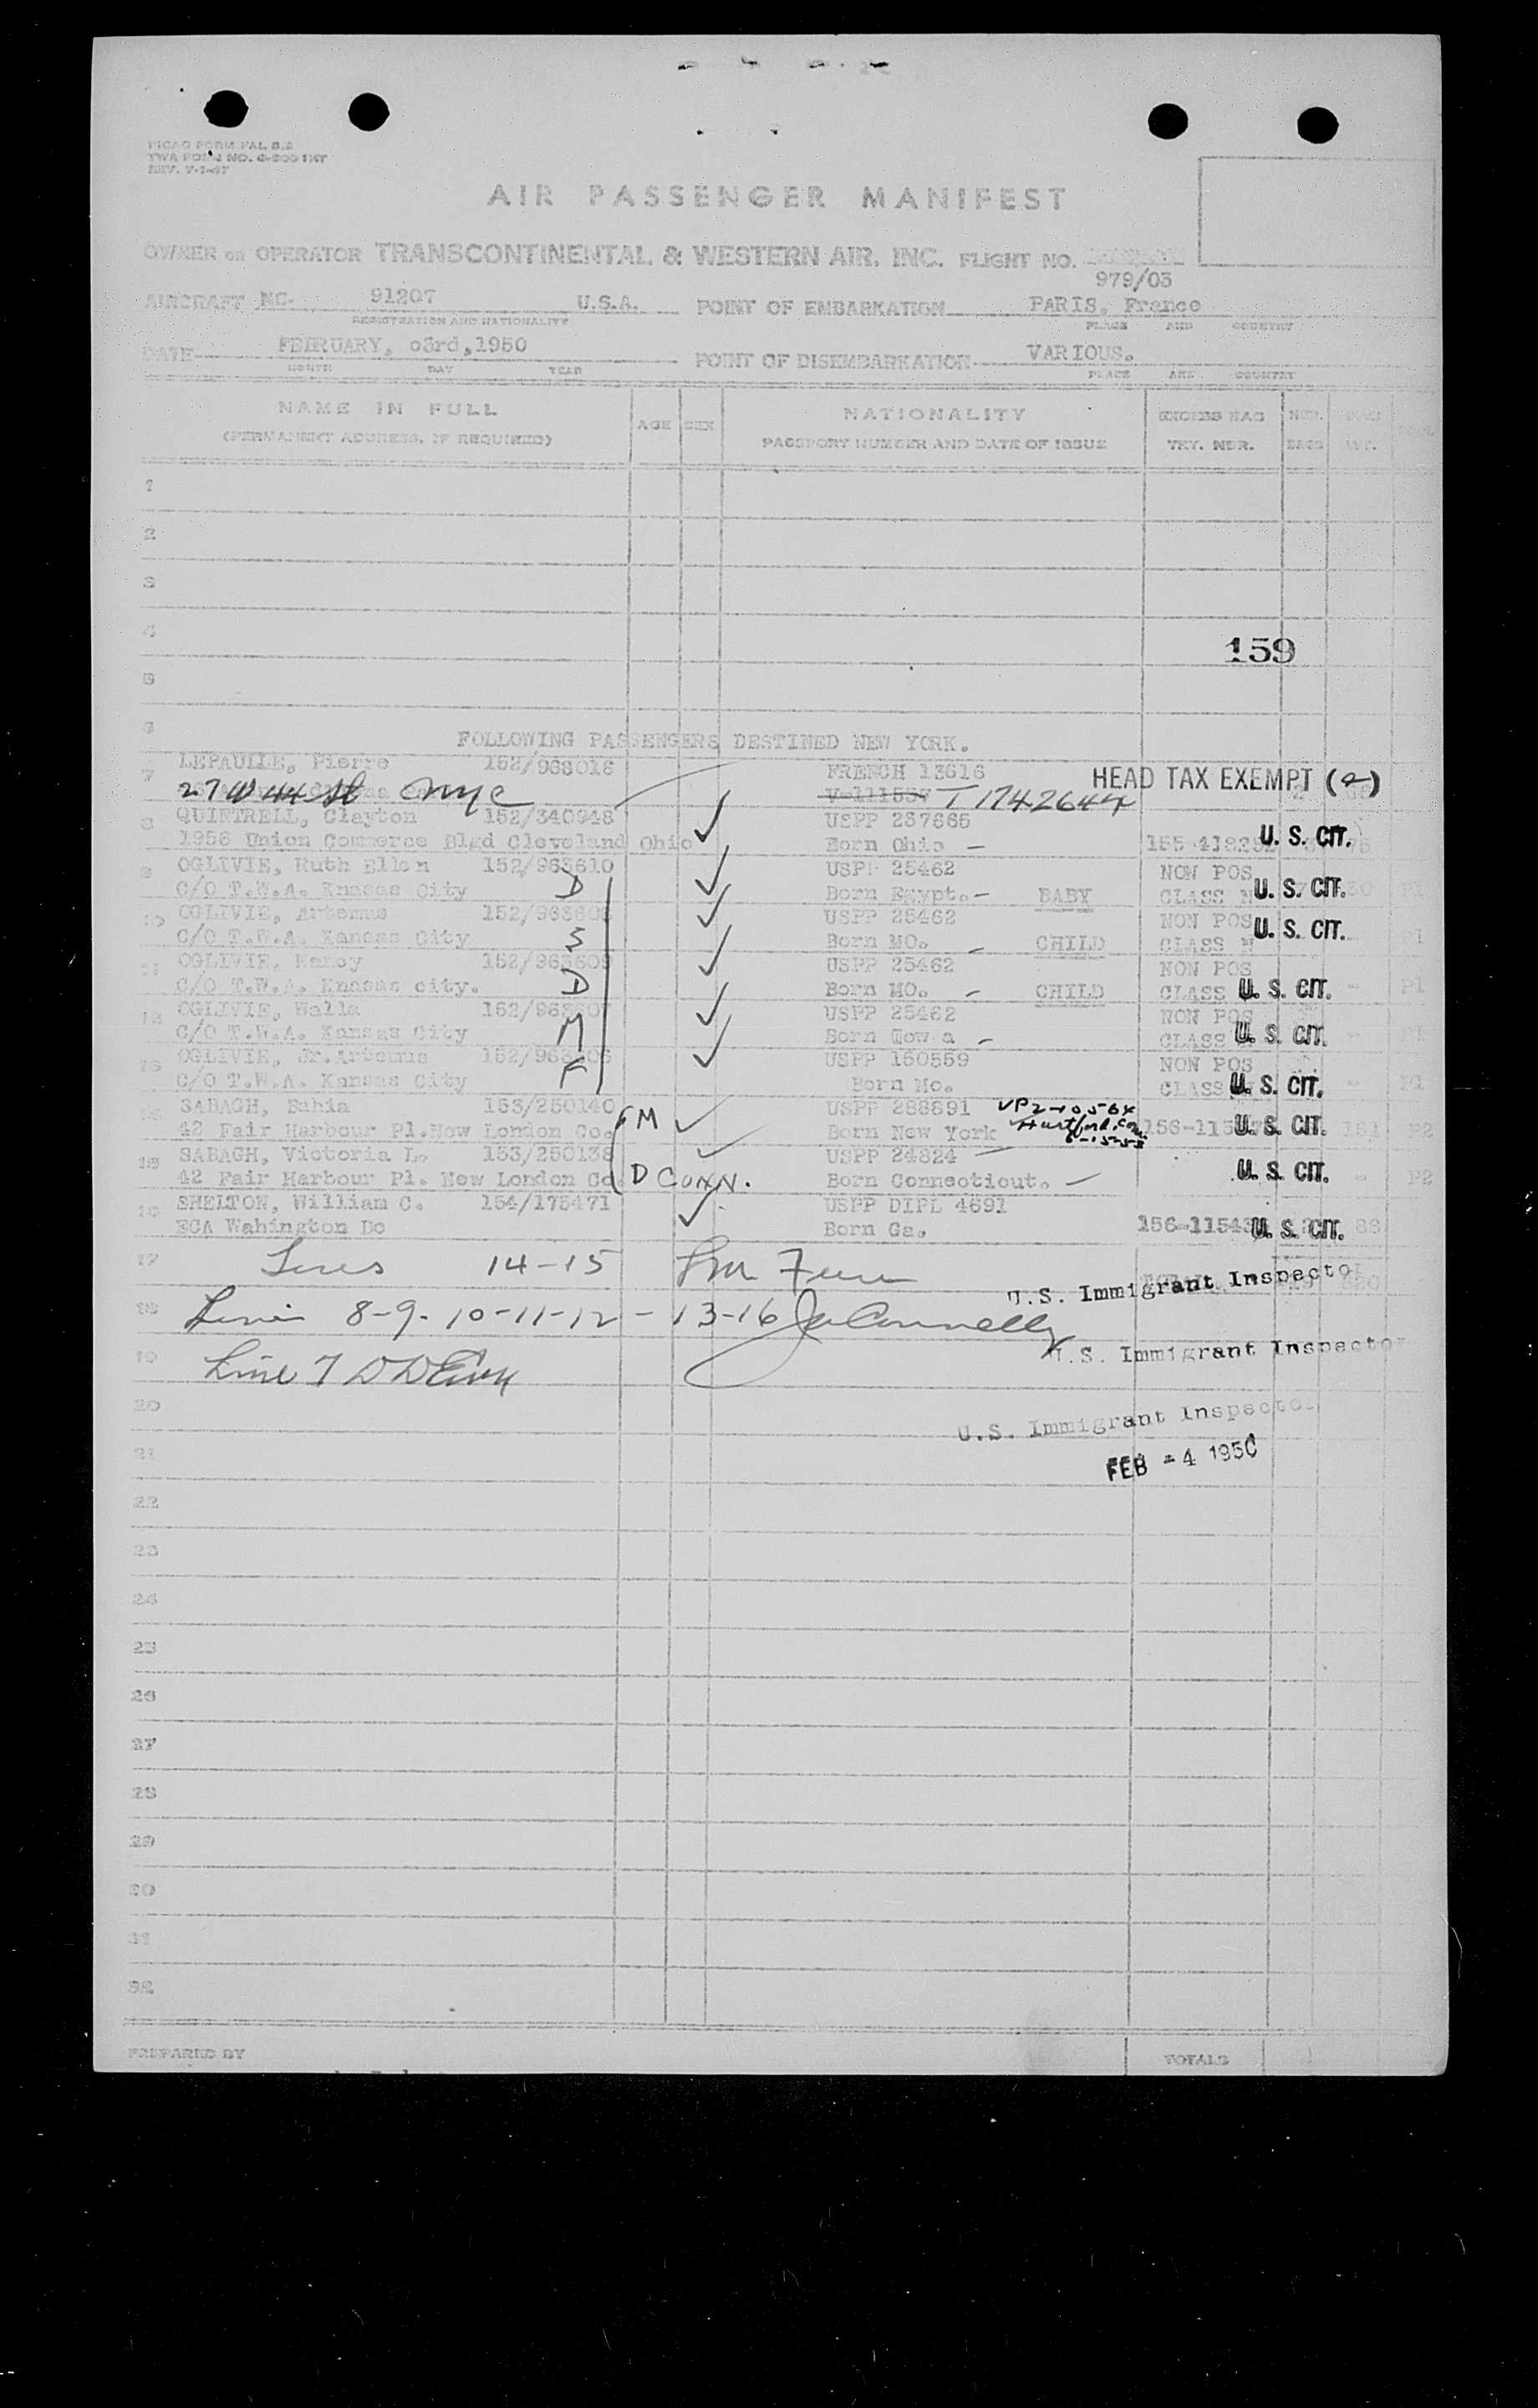 PICAO FORM FAL 3.2
TWA FORM NO. C-200 INT
REV. 7-1-47
AIR PASSENGER MANIFEST
OWNER OR OPERATOR TRANSCONTINENTAL & WESTERN AIR, INC. FLIGHT NO.
979/03
AIRCRAFT NC- 91207 U.S.A. POINT OF EMBARKATION PARIS, France
REGISTRATION AND NATIONALITY PLACE AND COUNTRY
DATE FEBRUARY, o3rd,1950 POINT OF DISEMBARKATION VARIOUS.
MONTH DAY YEAR PLACE AND COUNTRY
NAME IN FULL AGE SEX NATIONALITY EXCESS BAG NBR.
(PERMANENT ADDRESS, IF REQUIRED) PASSPORT NUMBER AND DATE OF ISSUE TKT. NBR. BAGS WT.
1
2
3
4
159
5
6
FOLLOWING PASSENGERS DESTINED NEW YORK.
7 LEPAULLE, Pierre 152/968016 FRENCH 13616
27 W 44 St NYC V-111537 T 1742644 HEAD TAX EXEMPT (2)
8 QUINTRELL, Clayton 152/340948 USPP 237665
1956 Union Commerce Blgd Cleveland Ohio Born Ohio - U. S. CIT.
9 OGLIVIE, Ruth Ellen 152/968610 USPP 25462 NON POS
C/O T.W.A. Knasas City D Born Egypt. - BABY CLASS N U. S. CIT. P1
10 OGLIVIE, Artemus USPP 25462 NON POS
C/O T.W.A. Kansas City S Born MO. - CHILD CLASS N U. S. CIT. P1
11 OGLIVIE, Nancy USPP 25462 NON POS
C/O T.W.A. Knasas city. D Born MO. - CHILD CLASS U. S. CIT. - P1
12 OGLIVIE, Walla USPP 25462 NON POS
C/O T.W.A. Kansas City M Born Iowa - CLASS U. S. CIT. - P1
13 OGLIVIE, Jr.Artemus USPP 150559 NON POS
C/O T.W.A. Kansas City F Born Mo. CLASS U. S. CIT. - P1
SABAGH, Bahia 153/250140 M USPP 288691 VP2-10564
42 Fair Harbour Pl.New London Co. Born New York Hartford, Con U. S. CIT. P2
SABAGH, Victoria L. 153/250138 USPP 24824
42 Fair Harbour Pl. New London Co. D CONN. Born Connecticut. - U. S. CIT. - P2
SHELTON, William C. 154/175471 USPP DIPL 4691
ECA Wahington Dc Born Ga. U. S. CIT. 88
17 Lines 14-15 U.S. Immigrant Inspector
18 8-9-10-11-12-13-16 J Connelly
U.S. Immigrant Inspector
19 Line 7
20
U.S. Immigrant Inspector
21 FEB -4 1950
22
23
24
25
26
27
28
29
30
31
32
PREPARED BY TOTALS